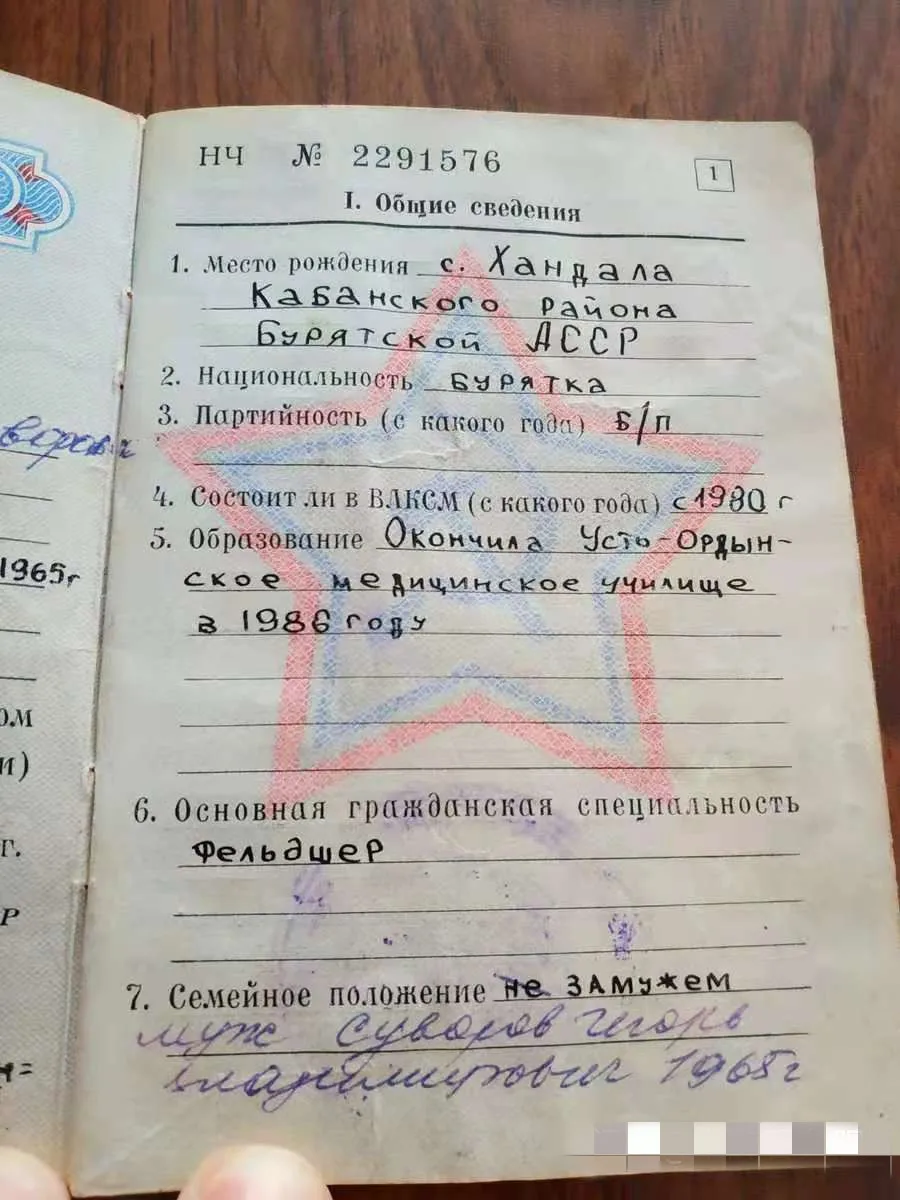 НЧ № 2291576
1
I. Общие сведения
1. Место рождения с. Хандала
Кабанского района
Бурятской АССР
2. Национальность бурятка
3. Партийность (с какого года) Б/П
4. Состоит ли в ВЛКСМ (с какого года) с 1980 г
5. Образование Окончила Усть-Ордын-
ское медицинское училище
в 1986 году
6. Основная гражданская специальность
Фельдшер
7. Семейное положение не замужем
муж Суворов Игорь
Владимирович 1965 г
1965г
ом
и)
г.
Р